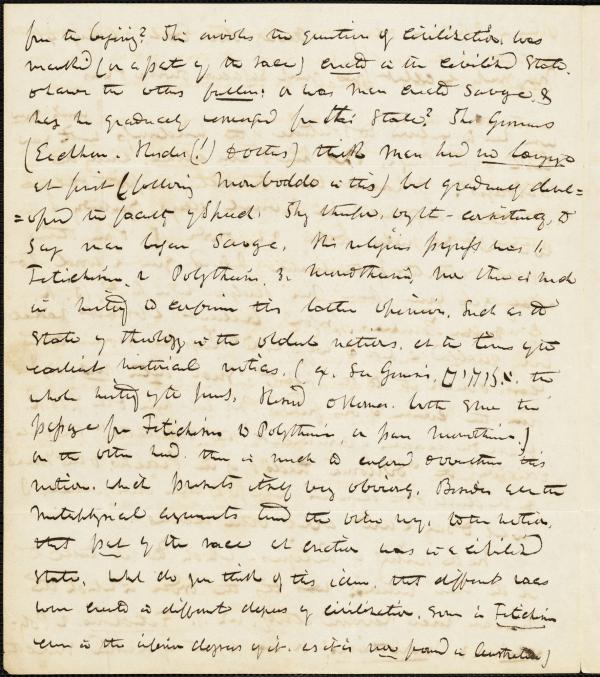 from the beginning? This involves the question of civilization, was
mankind (or a part of the race) created in the civilized State.
& have the others fallen; or was man created Savage, &
has he gradually emerged from this State? The Germans
(Eichhorn, Herder(!) & others) think man had no language
at first (following Monboddo in this) but gradually devel=
=oped the faculty of Speech. They therefore, ought - consistently, to
Say man began Savage. His religious progress was 1.
Fetichism, 2 Polytheism, 3. Monotheism, Now there is much
in history to confirm this latter opinion. Such as the
State of theology in the oldest nations, at the time of the
earliest historical notices. (ex. See Genesis, the
whole history of the Jews, Hesiod & Homer. both show the
passage from Fetichism to Polytheism, or pure Monotheism.)
on the other hand. there is much to overthrow this
notion, which presents itself very obviously. Besides all the
metaphysical arguments tend the other way, to the notion,
that part of the race at creation was in a civilized
State, what do you think of this idea, that different races
were created in different degrees of civilization, some in Fetichism
even in the inferior degrees of it. as it is now found in Australia)